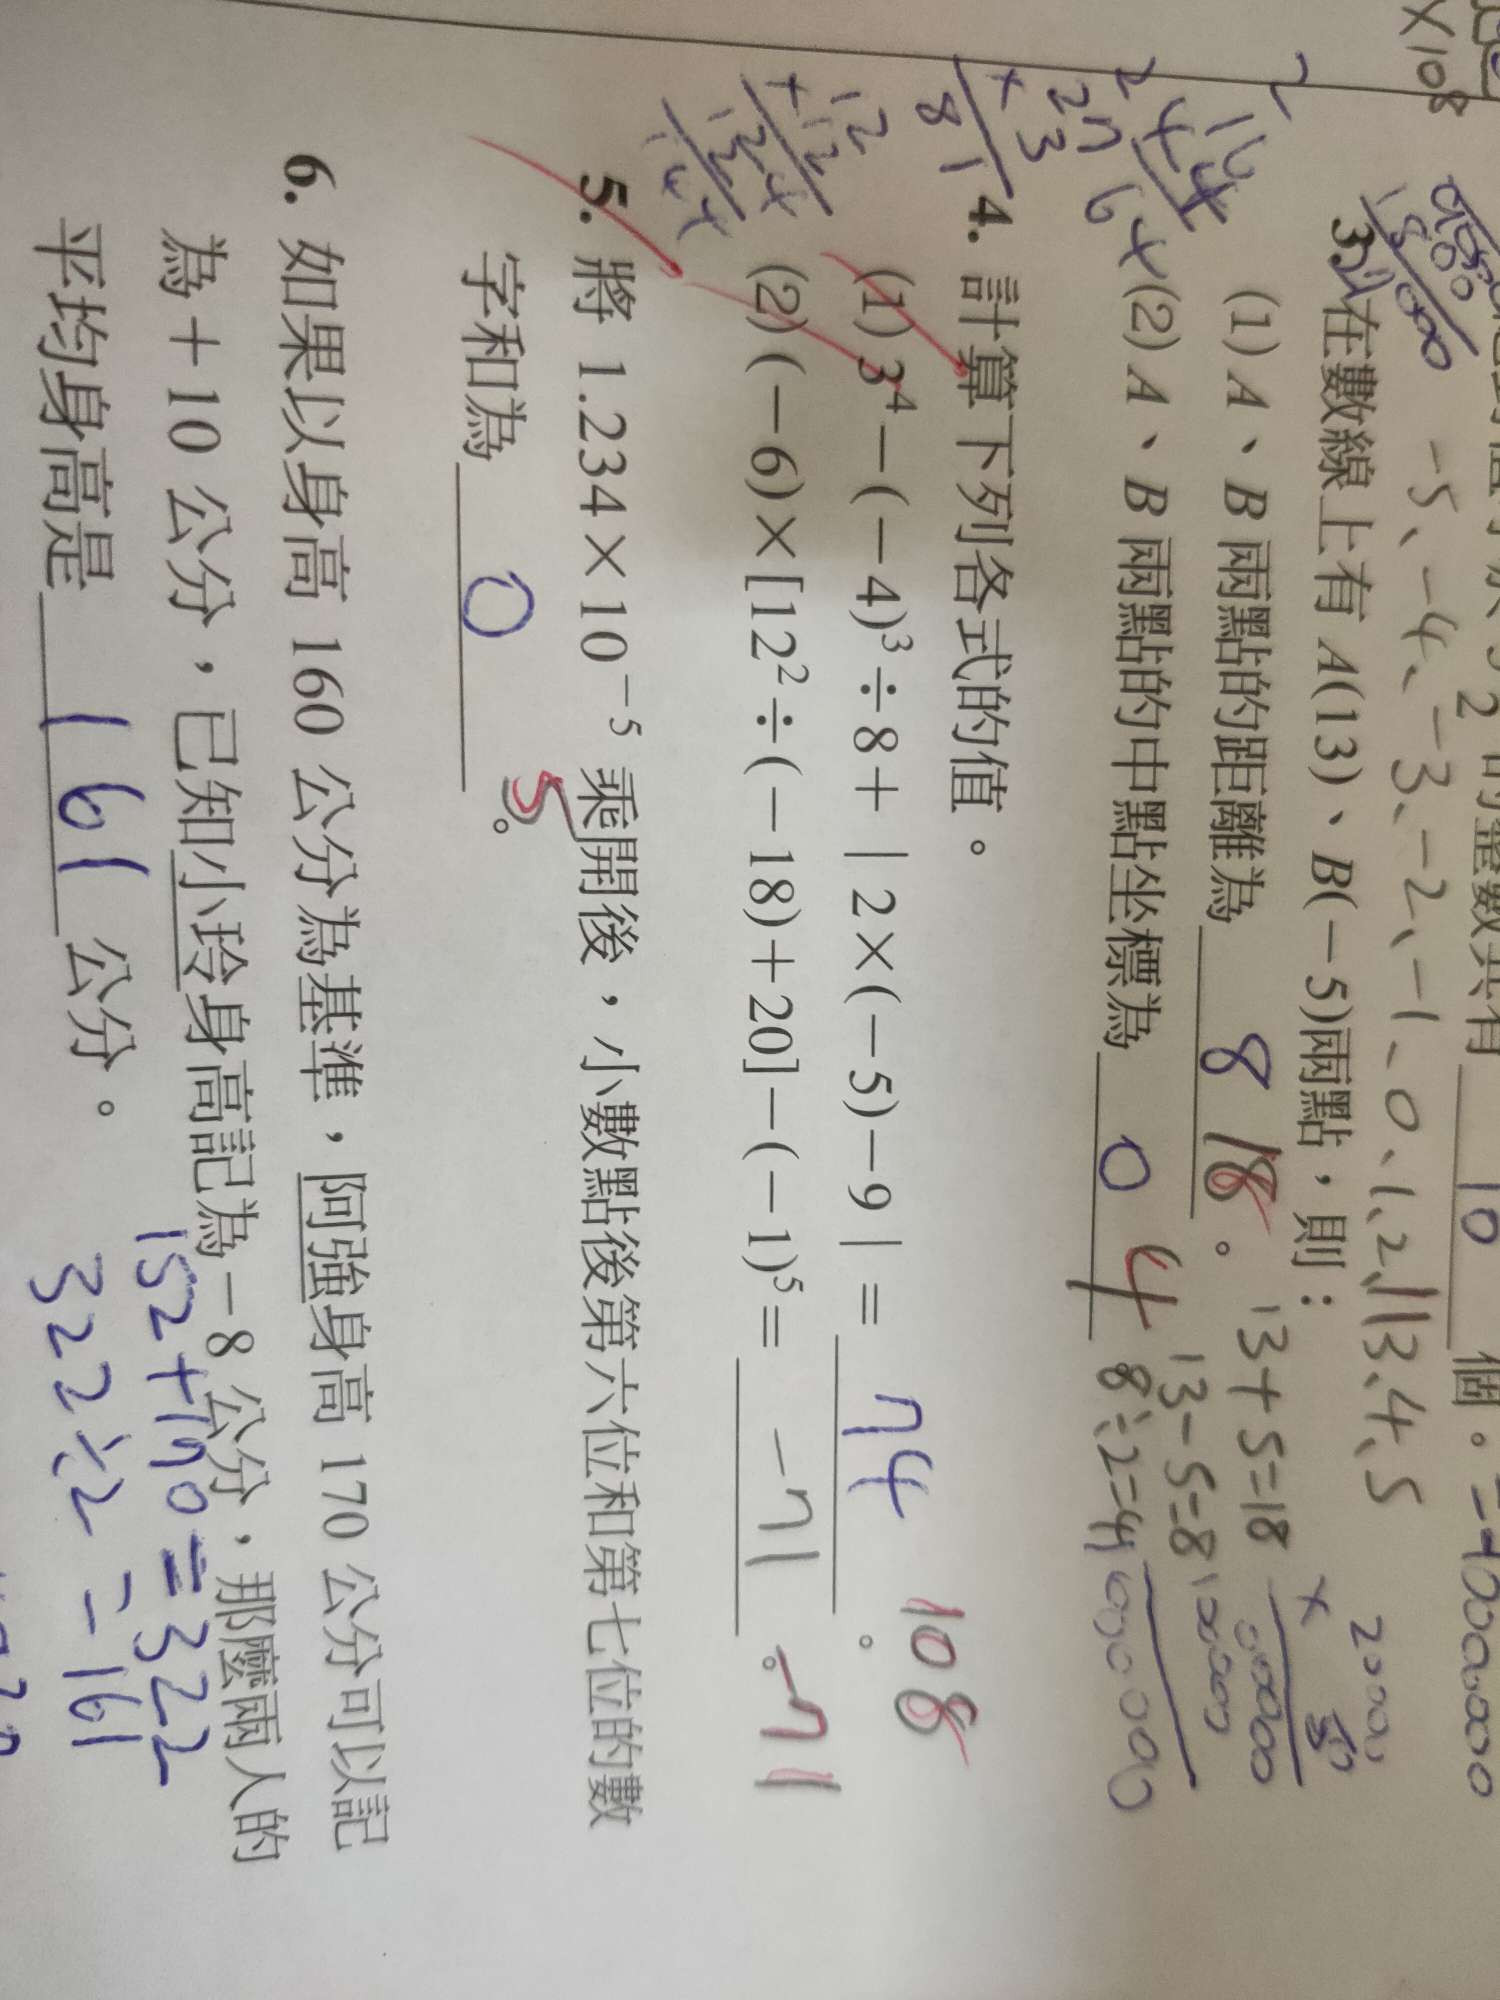 ×108
-5、-4、-3、-2、-1、0、1、2、3、4、5
3. 在數線上有 A(13)、B(-5)兩點，則：
(1) A、B 兩點的距離為 8 18。 13+5=18
13-5=8
(2) A、B 兩點的中點坐標為 0 4 8÷2=4
4. 計算下列各式的值。
(1) 3⁴-(-4)³÷8+|2×(-5)-9|= 74。 108
(2) (-6)×[12²÷(-18)+20]-(-1)⁵= -71。 -71
27
×3
81
16
×4
64
12
×12
24
12
144
5. 將 1.234×10⁻⁵ 乘開後，小數點後第六位和第七位的數
字和為 0 5。
6. 如果以身高 160 公分為基準，阿強身高 170 公分可以記
為+10 公分，已知小玲身高記為-8 公分，那麼兩人的
平均身高是 161 公分。
152+170=322
322÷2=161